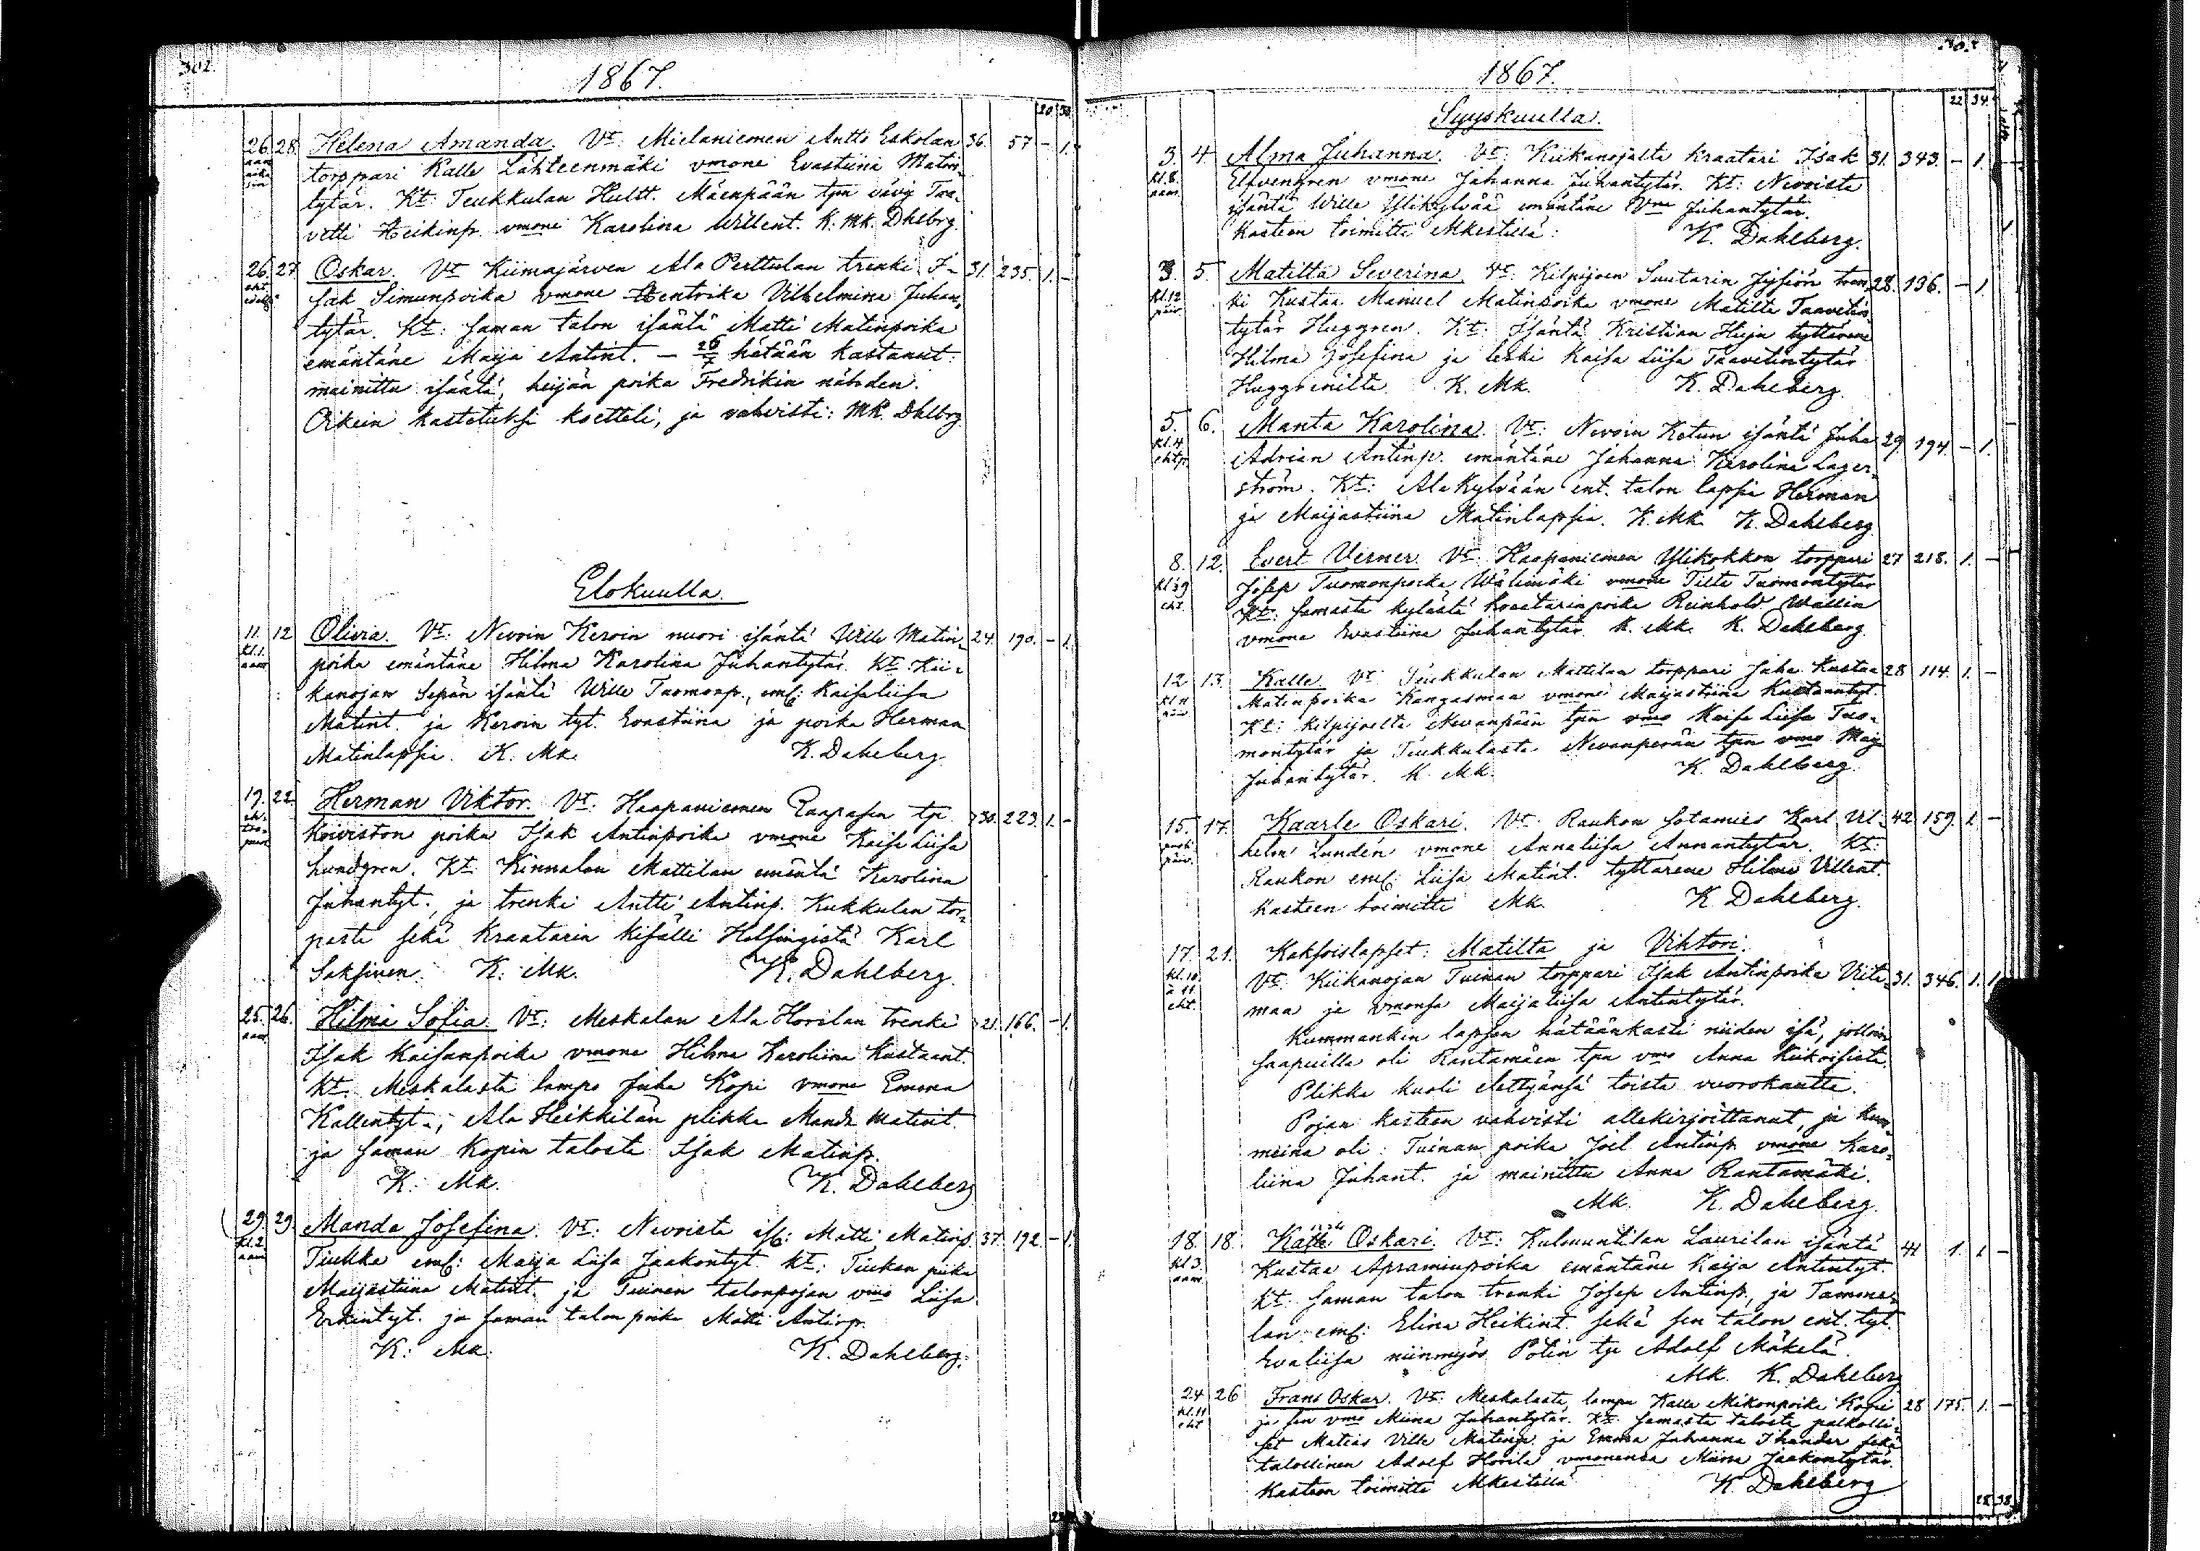 302.
1867.
20 30
26. 28. Helena Amanda. Vt: Mielaniemen Antti Eskolan 36. 57 - 1.
aam torppari Kalle Lähteenmäki vmone Evastiina Matin
tytär. Kt: Teukkulan Hultt. Mäenpään tpn vävy Taa-
vetti Heikinp. vmone Karolina Willent. K. Mk. Dhlbrg.
26. 27. Oskar. Vt Kiimajärven Ala Perttulan trenki I- 31. 235. 1. -
sak Simunpoika vmone Hentrika Vilhelmina Juhan-
tytär. Kt: saman talon isäntä Matti Matinpoika
emäntäne Maija Antint. — 26/7 hätään kastanut
mainittu isäntä, heijän poika Fredrikin nähden.
Oikein kastetuksi koetteli, ja vahvisti: Mk. Dhlbrg
Elokuulla.
11. 12 Olivia. Vt: Nevoin Keroin nuori isäntä Wille Matin- 24. 190. - 1.
kl.1. aam poika emäntäne Hilma Karolina Juhantytär. Kt: Kii-
kanojan Sepän isäntä Wille Tuomonp., ems: Kaisaliisa
Matint. ja Keroin tyt. Evastiina ja poika Herman
Matinlapsia. K. Mk. K. Dahlberg.
19. 22. Herman Viktor. Vt: Haapaniemen Raapasen tp: 30. 223. 1. -
Koiviston poika Isak Antinpoika vmone Kaisa Liisa
Lundgren. Kt: Kinnalan Mattilan emäntä Karolina
Juhantyt., ja trenki Antti Antinp. Kukkulan tor-
pasta sekä kraatarin kisälli Helsingistä Karl
K. Mk. K. Dahlberg.
25. 26. Hilma Sofia. Vt: Meskalan Ala Horilan trenki 21. 166. - 1.
aam Isak Kaisanpoika vmone Hilma Karoliina Kustaant.
Kt. Meskalasta lampo Juha Kopi vmone Emma
Kallentyt., Ala Heikkilän plikka Manda Matint.
ja saman Kopin talosta Isak Matinp.
K: Mk. K. Dahlberg
29. 29. Manda Josefina. Vt: Nevoista is: Matti Matinp. 37. 192. - 1.
kl.2. aam Tiukka ems: Maija Liisa Jaakontyt. Kt: Tiukan piika
Maijastiina Matint. ja Tuinen talonpojan vmo Liisa
Erkintyt. ja saman talon poika Matti Antinp.
K: Mk. K. Dahlberg.
303
1867.
22 34.
Syyskuulla.
3. 4 Alma Juhanna. Vt: Kiikanojalta kraatari Isak 31. 343. - 1.
kl.8. aam. Elfvengren vmone Johanna Juhantytär. Kt: Nevoista
isäntä Wille Ylikylvää emäntäne Juhantytär.
Kasteen toimitti Mkestillä: K. Dahlberg.
3. 5. Matilta Severina. Vt: Kilpijoen Suutarin Jysiön tren 28. 136. - 1
kl.12 päiv. ki Kustaa Manuel Matinpoika vmone Matilta Taavetin
tytär Huggren. Kt: Isäntä Kristian Huja tyttärene
Hilma Josefina ja leski Kaisa Liisa Taavetintytär
K. Mk. K. Dahlberg.
5. 6. Manta Karolina. Vt: Nevoin Ketun isäntä Juha 29. 194. - 1.
kl.4 ehtp. Adrian Antinp. emäntäne Johanna Karolina Lager-
ström. Kt: Alakylvään ent. talon lapsia Herman
ja Maijastiina Matinlapsia. K. Mk. K. Dahlberg.
8. 12. Evert Verner. Vt: Haapaniemen Ylikokkon torppari 27 218. 1. -
Josep Tuomonpoika Wälimäki vmone Tilta Tuomontytär
Kt: samasta kylästä kraatarinpoika Reinhold Wallin
vmone Evastiina Juhantytär. K. Mk. K. Dahlberg.
12. 13. Kalle. Vt: Tiukkulan Mattilan torppari Juha Kustaa 28 114. 1. -
Matinpoika Kangasmaa vmone Maijastiina Kustaantyt.
Kt: Kilpijoelta Nevanpään tpn vmo Kaisa Liisa Tuo-
montytär ja Tiukkulasta Nevanperän tpn vmo Maija
Juhantytär. K. Mk. K. Dahlberg.
15. 17. Kaarle Oskari. Vt: Raukon sotamies Karl Vil- 42 159. 1. -
helm Lundén vmone Annaliisa Annantytär. Kt:
Raukon ems: Liisa Matint. tyttärene Hilma Villent.
Kasteen toimitti Mk. K. Dahlberg.
17. 21. Kaksoislapset: Matilta ja Viktori.
kl.10 à 11 eht. Vt: Kiikanojan Tuinan torppari Isak Antinpoika Viita- 31. 346. 1. 1
maa ja vmonsa Maijaliisa Antintytär.
Kummankin lapsen hätäänkasti niiden isä, jolloin
saapuilla oli Rantamäen tpn vmo Anna Kiikoisista.
Plikka kuoli elettyänsä toista vuorokautta.
Pojan kasteen vahvisti allekirjoittanut, ja kum-
meina oli: Tuinan poika Joel Antinp. vmone Karo-
liina Juhant. ja mainittu Anna Rantamäki.
Mk. K. Dahlberg.
18. 18. Oskari. Vt: Kulmuntilan Laurilan isäntä 41 1. 1. -
kl 3. aam. Kustaa Apraminpoika emäntäne Kaija Antintyt.
Kt: saman talon trenki Josep Antinp., ja Tamme-
lan ems: Elina Heikint. sekä sen talon ent. tyt.
Evaliisa niinmyös Potin tp: Adolf Mäkelä.
Mk. K. Dahlberg
24 26 Frans Oskar. Vt: Meskalasta, lampo Kalle Mikonpoika Kopi 28 175. 1. -
kl.11 eht ja sen vmo Miina Juhantytär. Kt: samasta talosta palkolli-
set Matias Ville Matinp. ja Emma Juhanna Ihander sekä
talollinen Adolf Horila vmonensa Miina Jaakontytär.
Kasteen toimitti Mkestillä K Dahlberg
28 38